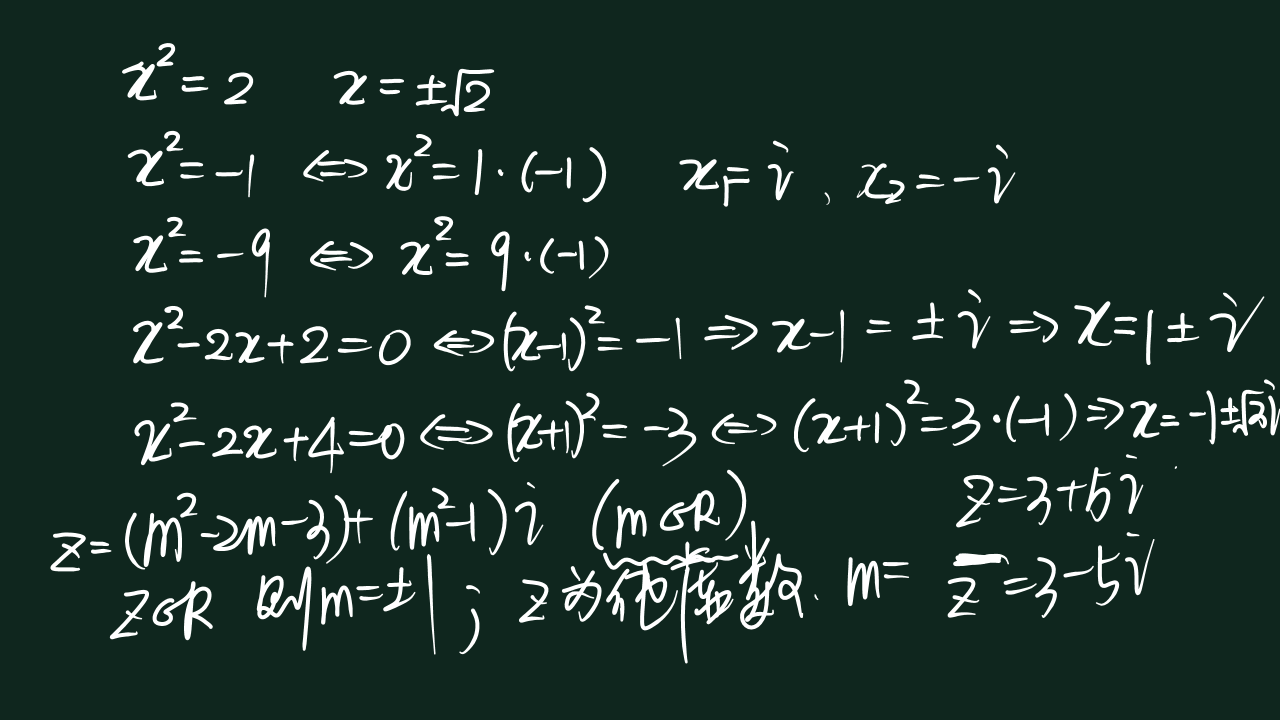 x² = 2 x = ±√2
x² = -1 ⇔ x² = 1·(-1) x₁ = i , x₂ = -i
x² = -9 ⇔ x² = 9·(-1)
x² - 2x + 2 = 0 ⇔ (x-1)² = -1 ⇒ x-1 = ± i ⇒ x = 1 ± i
x² - 2x + 4 = 0 ⇔ (x+1)² = -3 ⇔ (x+1)² = 3·(-1) ⇒ x = -1±√3i
z = (m² - 2m - 3) + (m² - 1) i (m∈R) z = 3 + 5i
z∈R 则 m = ±1 ; z为纯虚数. m= z̅ = 3 - 5i